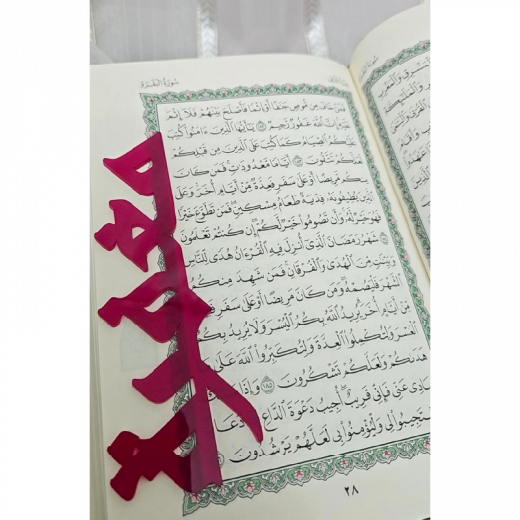 سُورَةُ البَقَرَةِ
خَافَ مِن مُّوصٍ جَنَفًا أَوْ إِثْمًا فَأَصْلَحَ بَيْنَهُمْ فَلَآ إِثْمَ
عَلَيْهِ إِنَّ ٱللَّهَ غَفُورٌ رَّحِيمٌ ١٨٢ يَٰٓأَيُّهَا ٱلَّذِينَ ءَامَنُوا۟ كُتِبَ
عَلَيْكُمُ ٱلصِّيَامُ كَمَا كُتِبَ عَلَى ٱلَّذِينَ مِن قَبْلِكُمْ
لَعَلَّكُمْ تَتَّقُونَ ١٨٣ أَيَّامًا مَّعْدُودَٰتٍ فَمَن كَانَ
مَّرِيضًا أَوْ عَلَىٰ سَفَرٍ فَعِدَّةٌ مِّنْ أَيَّامٍ أُخَرَ وَعَلَى
ٱلَّذِينَ يُطِيقُونَهُۥ فِدْيَةٌ طَعَامُ مِسْكِينٍ فَمَن تَطَوَّعَ خَيْرًا
فَهُوَ خَيْرٌ لَّهُۥ وَأَن تَصُومُوا۟ خَيْرٌ لَّكُمْ إِن كُنتُمْ تَعْلَمُونَ
شَهْرُ رَمَضَانَ ٱلَّذِىٓ أُنزِلَ فِيهِ ٱلْقُرْءَانُ هُدًى لِّلنَّاسِ
وَبَيِّنَٰتٍ مِّنَ ٱلْهُدَىٰ وَٱلْفُرْقَانِ فَمَن شَهِدَ مِنكُمُ
ٱلشَّهْرَ فَلْيَصُمْهُ وَمَن كَانَ مَرِيضًا أَوْ عَلَىٰ سَفَرٍ
مِّنْ أَيَّامٍ أُخَرَ يُرِيدُ ٱللَّهُ بِكُمُ ٱلْيُسْرَ وَلَا يُرِيدُ بِكُمُ
ٱلْعُسْرَ وَلِتُكْمِلُوا۟ ٱلْعِدَّةَ وَلِتُكَبِّرُوا۟ ٱللَّهَ عَلَىٰ
هَدَىٰكُمْ وَلَعَلَّكُمْ تَشْكُرُونَ ١٨٥ وَإِذَا
عِبَادِى عَنِّى فَإِنِّى قَرِيبٌ أُجِيبُ دَعْوَةَ ٱلدَّاعِ إِذَا دَعَانِ
فَلْيَسْتَجِيبُوا۟ لِى وَلْيُؤْمِنُوا۟ بِى لَعَلَّهُمْ يَرْشُدُونَ
٢٨